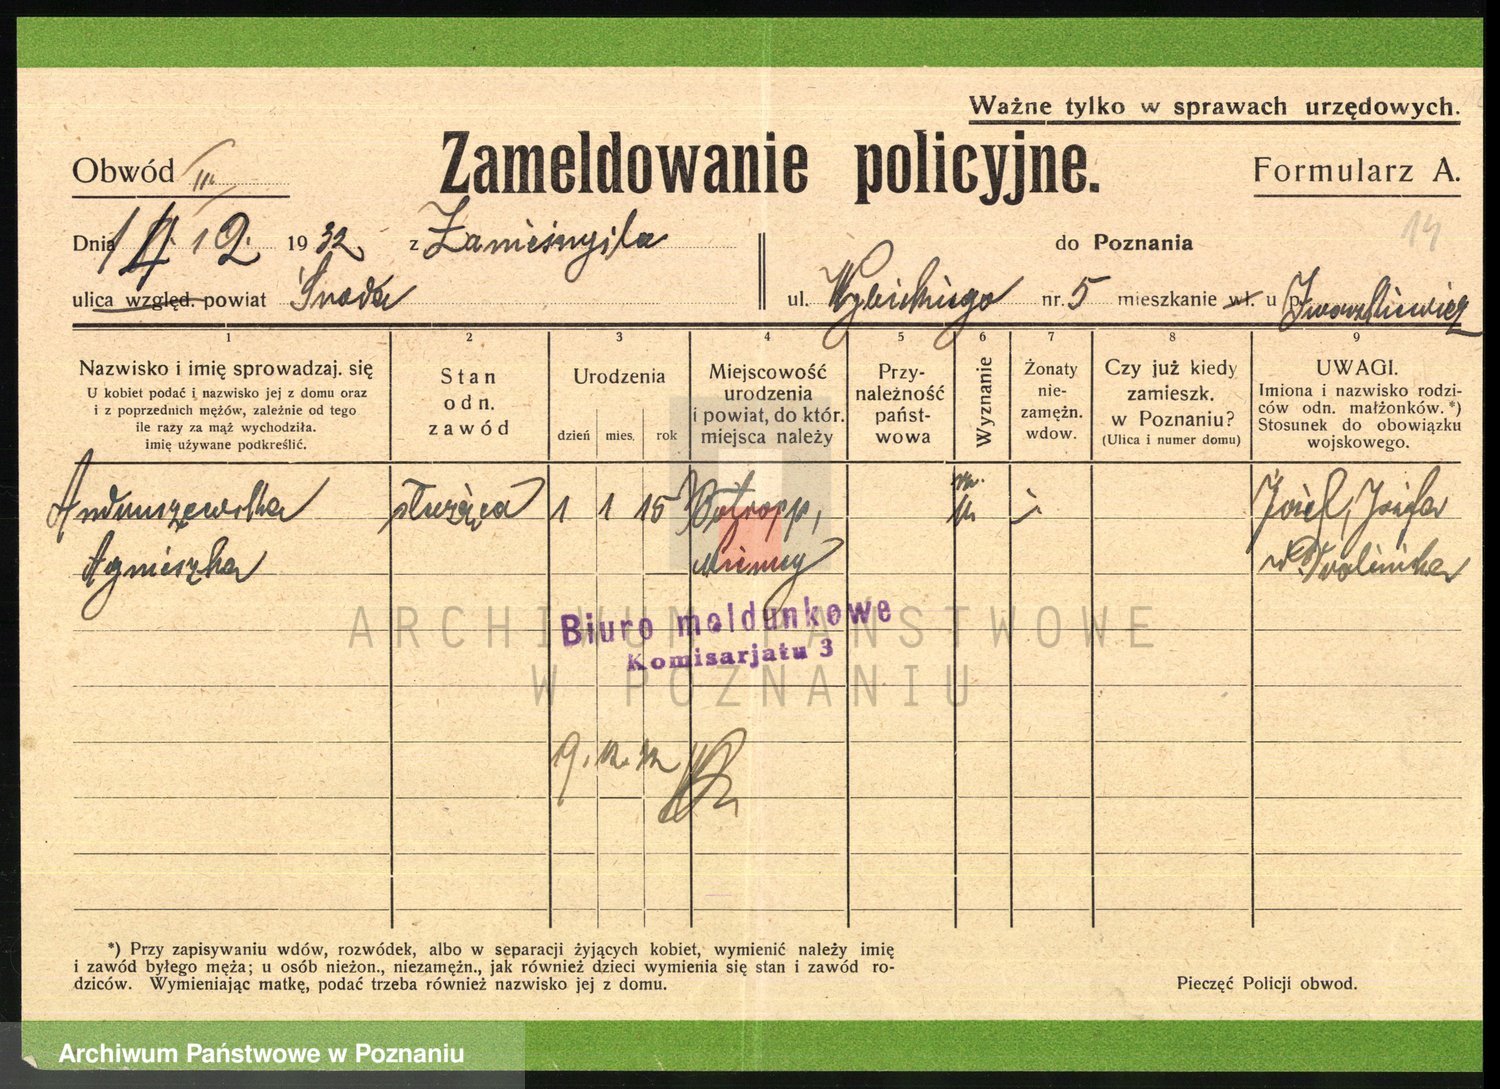 Ważne tylko w sprawach urzędowych.
Obwód III
Zameldowanie policyjne.
Formularz A.
Dnia 14. 12. 1932 z Zaniemyśla
do Poznania
14
ulica względ. powiat Środa
ul. Wybickiego nr. 5 mieszkanie wł. u p. Iwaszkiewicz
1 2 3 4 5 6 7 8 9
Nazwisko i imię sprowadzaj. się
U kobiet podać i nazwisko jej z domu oraz
i z poprzednich mężów, zależnie od tego
ile razy za mąż wychodziła.
imię używane podkreślić.
Stan
odn.
zawód
Urodzenia
dzień mies. rok
Miejscowość
urodzenia
i powiat, do któr.
miejsca należy
Przy-
należność
państ-
wowa
Wyznanie
Żonaty
nie-
zamężn.
wdow.
Czy już kiedy
zamieszk.
w Poznaniu?
(Ulica i numer domu)
UWAGI.
Imiona i nazwisko rodzi-
ców odn. małżonków.*)
Stosunek do obowiązku
wojskowego.
Andruszewska służąca 1 1 15 Bottropp, rz. k. Józef, Józefa
Agnieszka Niemcy
ARCHIWUM PAŃSTWOWE
W POZNANIU
Biuro meldunkowe
Komisarjatu 3
19. 12. 32
*) Przy zapisywaniu wdów, rozwódek, albo w separacji żyjących kobiet, wymienić należy imię
i zawód byłego męża; u osób nieżon., niezamężn., jak również dzieci wymienia się stan i zawód ro-
dziców. Wymieniając matkę, podać trzeba również nazwisko jej z domu.
Pieczęć Policji obwod.
Archiwum Państwowe w Poznaniu